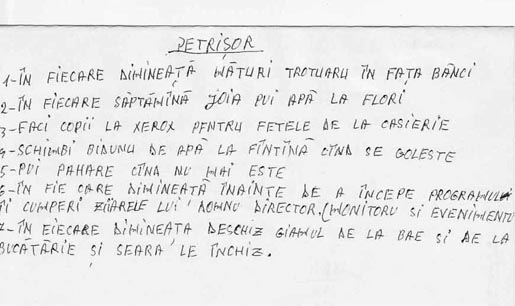 PETRISOR
1-ÎN FIECARE DIMINEAȚĂ MĂTURI TROTUARU ÎN FAȚA BĂNCI
2-ÎN FIECARE SĂPTĂMÎNĂ JOIA PUI APĂ LA FLORI
3-FACI COPII LA XEROX PENTRU FETELE DE LA CASIERIE
4-SCHIMBI BIDUNU DE APĂ LA FÎNTÎNĂ CÎND SE GOLESTE
5-PUI PAHARE CÎND NU MAI ESTE
6-ÎN FIE CARE DIMINEATĂ ÎNAINTE DE A ÎNCEPE PROGRAMULUI
ÎI CUMPERI ZIARELE LUI DOMNU DIRECTOR.(MONITORU SI EVENIMENTU
7-ÎN FIECARE DIMINEATA DESCHIZ GIAMUL DE LA BAE SI DE LA
BUCĂTĂRIE ȘI SEARA LE ÎNCHIZ.